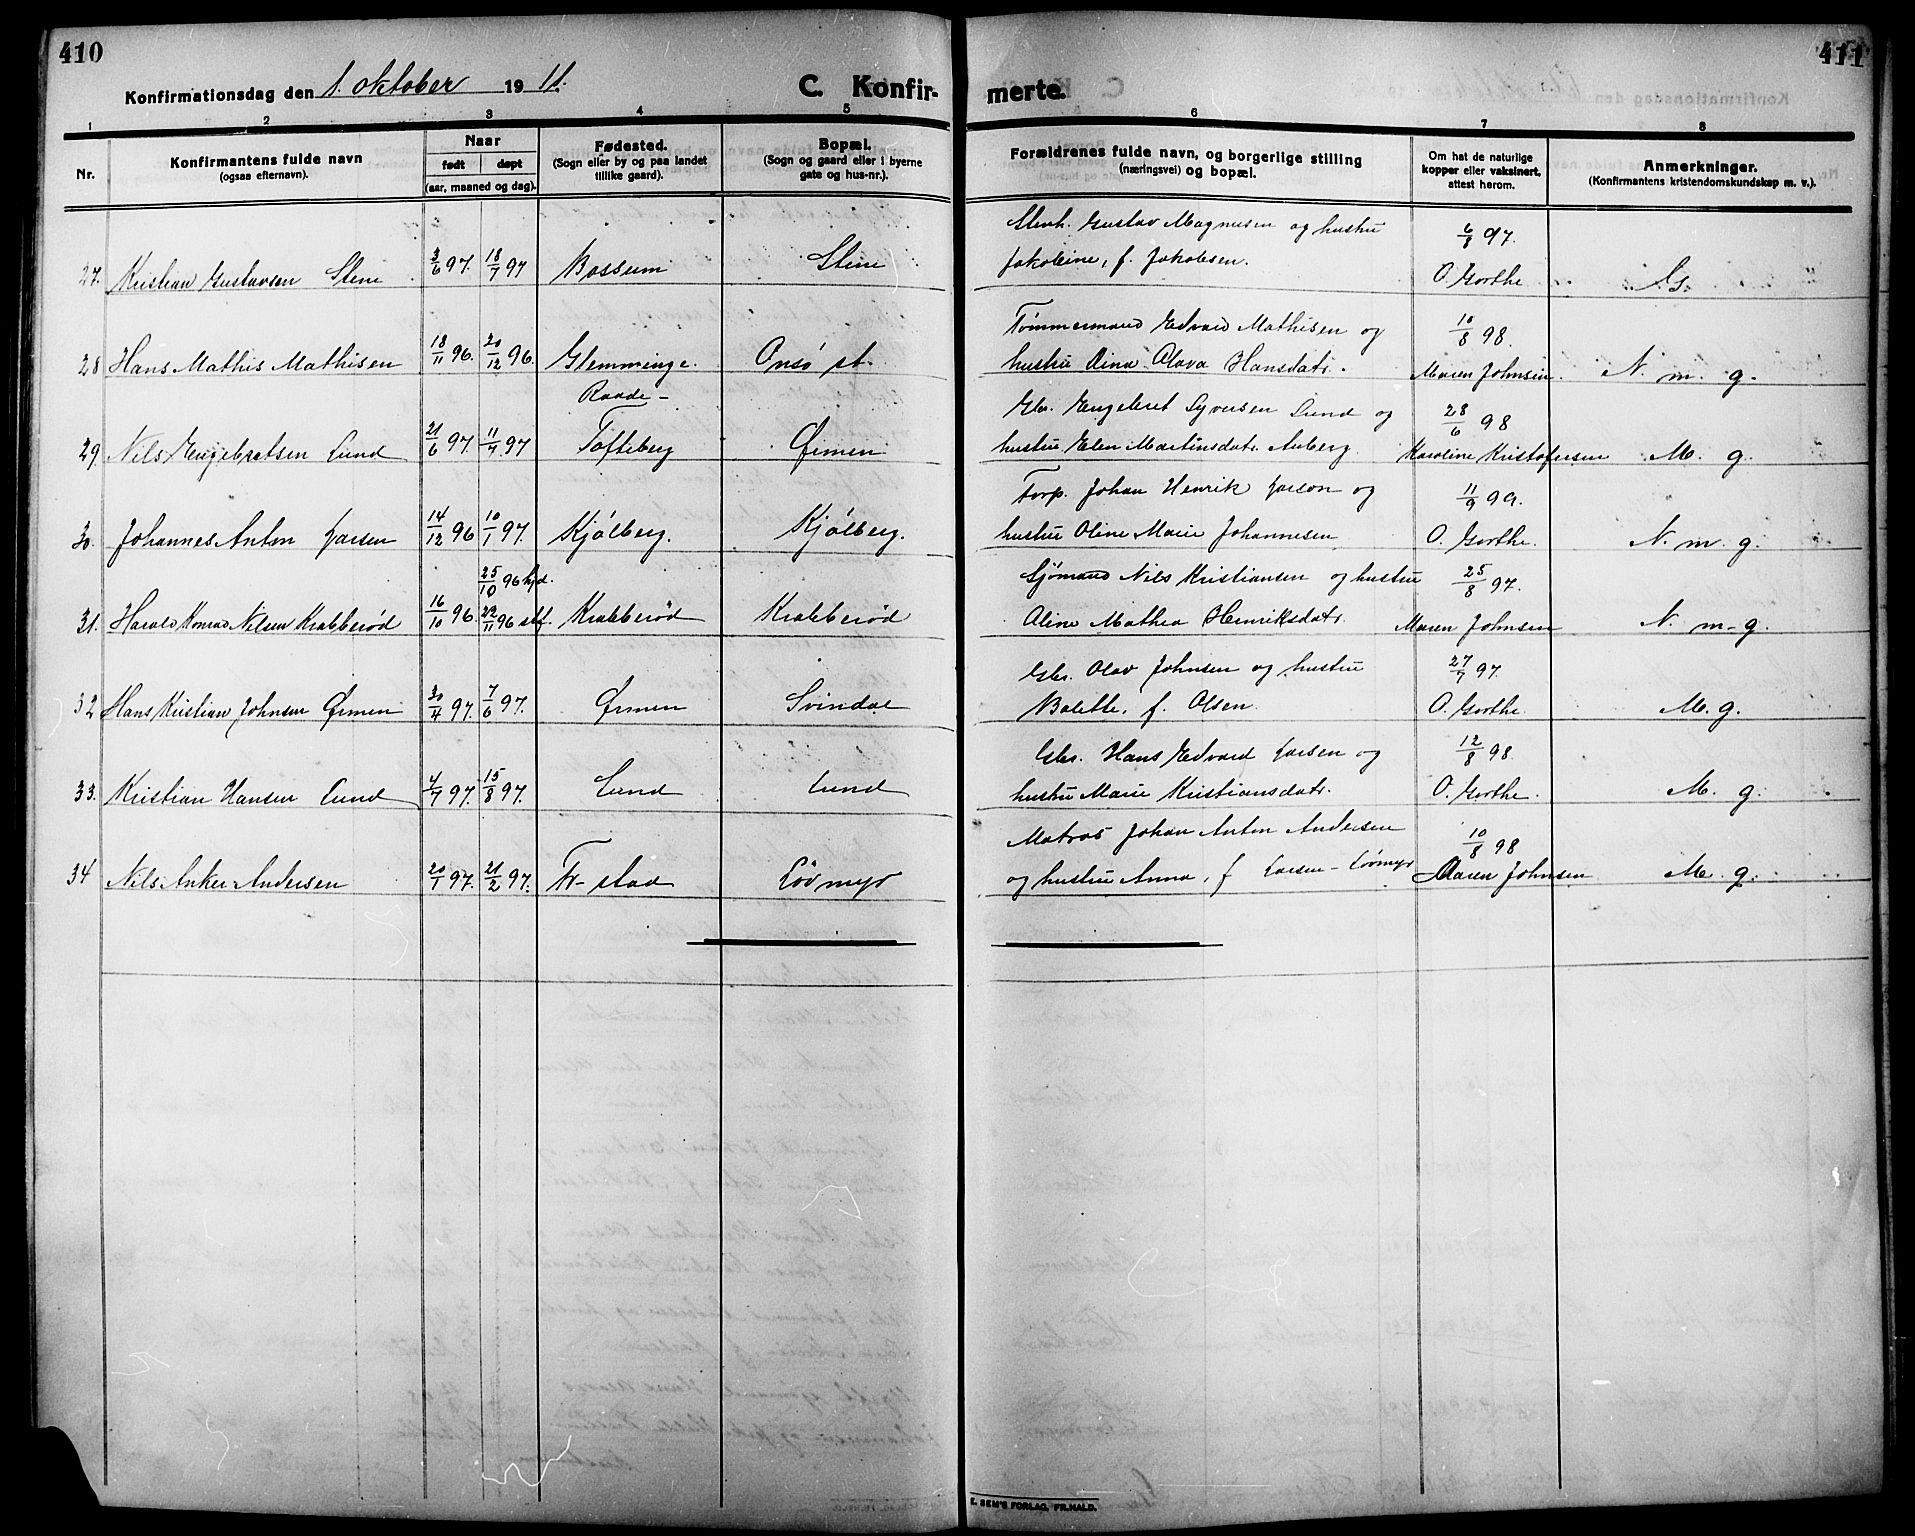 410
411
Konfirmationsdag den 1. oktober 1911.
C. Konfir-
merte.
1 2 3 4 5 6 7 8
Nr.
Konfirmantens fulde navn
(ogsaa efternavn).
Naar
født døpt
(aar, maaned og dag).
Fødested.
(Sogn eller by og paa landet
tillike gaard).
Bopæl.
(Sogn og gaard eller i byerne
gate og hus-nr.).
Forældrenes fulde navn, og borgerlige stilling
(næringsvei) og bopæl.
Om hat de naturlige
kopper eller vaksinert,
attest herom.
Anmerkninger.
(Konfirmantens kristendomskundskap m. v.).
Gustav Magnusen og hustru 6/8 97.
27. Kristian Gustavsen Stene 3/6 97. 18/7 97 Bossum Stene Jakobine, f. Jakobsen. O. Gorthe
Tømmermand Edvard Mathisen og 10/8 98.
28 Hans Mathis Mathisen 18/11 96. 20/12 96. Glemminge. Onsø st. hustru Dina Olava Hansdatr. Maren Johnsen. N. m. g.
Raade-
Gbr. Engebret Syversen Lund og 28/6 98
29. Nils Engebretsen Lund 21/6 97. 11/7 97 Tofteberg Ørmen hustru Elen Martinsdatr. Auberg. Karoline Kristofersen M. g.
Torp. Johan Henrik Larson og 11/9 99.
30. Johannes Anton Larsen 14/12 96 10/1 97. Kjølberg. Kjølberg. hustru Oline Marie Johannesen O. Gorthe. N. m. g.
25/10 96 hjd. Sjømand Nils Kristiansen og hustru 25/8 97.
31. Harald Konrad Nilsen Krabberød 16/10 96. 22/11 96 stf. Krabberød Krabberød Oline Mathea Henriksdatr. Maren Johnsen N. m-g.
Gbr. Olav Johnsen og hustru 27/7 97.
32 Hans Kristian Johnsen Ørmen 30/4 97. 7/6 97. Ørmen Svindal Bolette, f. Olsen. O. Gorthe. M. g.
Gbr. Hans Edvard Larsen og 12/8 98.
33. Kristian Hansen Lund 4/7 97. 15/8 97. Lund Lund hustru Marie Kristiansdatr. O. Gorthe. M. g.
Matros Johan Anton Andersen 10/8 98
34 Nils Anker Andersen 20/1 97. 21/2 97. Fr-stad Løvmyr og hustru Anna, f Larsen - Løvmyr Maren Johnsen M. g.
E. SEM'S FORLAG, FR.HALD.